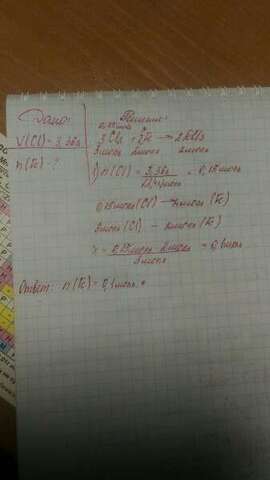 Дано:
V(Cl) = 3,36л
n(Fe) - ?
Решение:
0,15моль x
3Cl₂ + 2Fe → 2FeCl₃
3моль 2моль 2моль
1) n(Cl) = 3,36л / 22,4л/моль = 0,15моль
0,15моль(Cl) — x моль(Fe)
3моль(Cl) — 2моль(Fe)
x = 0,15моль · 2моль / 3моль = 0,1моль
Ответ: n(Fe) = 0,1моль.